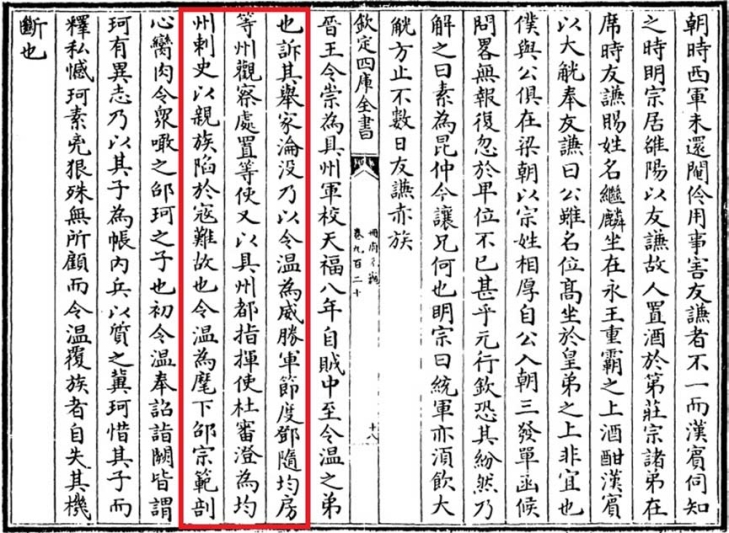 朝時西軍未還閹伶用事害友謙者不一而漢賓伺知
之時明宗居雒陽以友謙故人置酒於第莊宗諸弟在
席時友謙賜姓名繼麟坐在永王重霸之上酒酣漢賓
以大觥奉友謙曰公雖名位髙坐於皇弟之上非宜也
僕與公俱在梁朝以宗姓相厚自公入朝三發單函候
問畧無報復忽於卑位不已甚乎元行欽恐其紛然乃
解之曰素為昆仲今讓兄何也明宗曰統軍亦須飲大
觥方止不數日友謙亦族
欽定四庫全書
冊府元龜
卷九百二十
十八
晉王令崇為具州軍校天福八年自賊中至令温之弟
也訴其舉家淪没乃以令温為威勝軍節度鄧隨均房
等州觀察處置等使又以具州都指揮使杜審澄為均
州刺史以親族陷於寇難故也令温為麾下邵宗範剖
心臠肉令衆噉之邰珂之子也初令温奉詔詣闕皆謂
珂有異志乃以其子為帳内兵以質之冀珂惜其子而
釋私憾珂素兇狠殊無所顧而令温覆族者自失其機
斷也